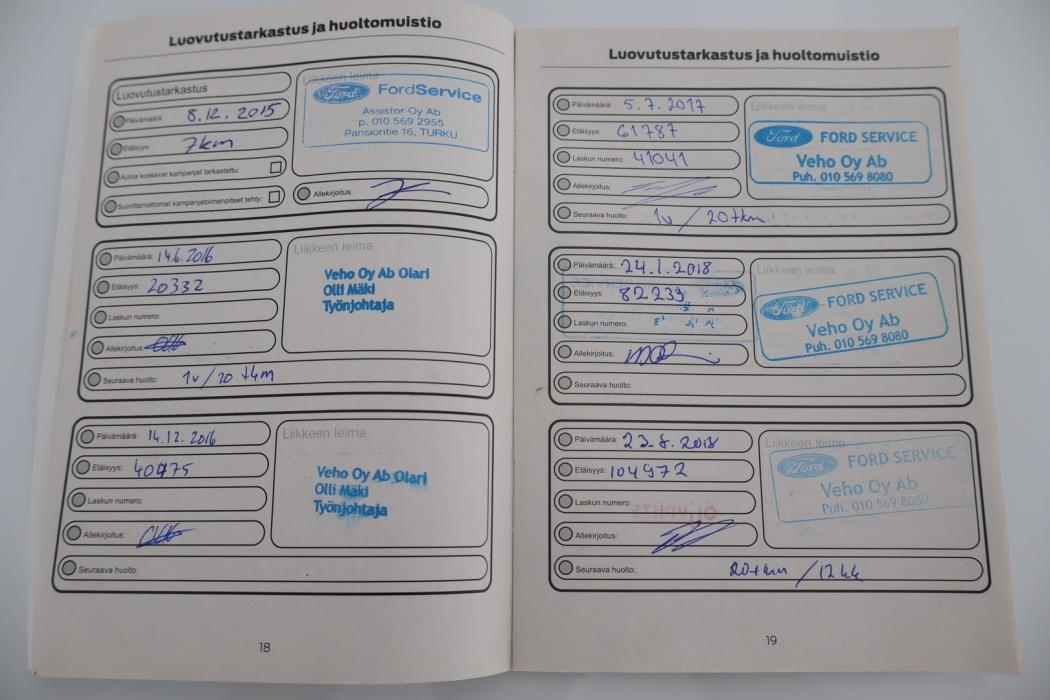 Luovutustarkastus ja huoltomuistio
Luovutustarkastus
Päivämäärä: 8.12.2015
Etäisyys: 7km
Autoa koskevat kampanjat tarkastettu:
Suorittamattomat kampanjatoimenpiteet tehty:
Liikkeen leima
Ford FordService
Assistor Oy Ab
p. 010 569 2955
Pansiontie 16, TURKU
Allekirjoitus:
Päivämäärä: 14.6.2016
Etäisyys: 20332
Laskun numero:
Allekirjoitus:
Seuraava huolto: 1v/20 tkm
Liikkeen leima
Veho Oy Ab Olari
Olli Mäki
Työnjohtaja
Päivämäärä: 14.12.2016
Etäisyys: 40975
Laskun numero:
Allekirjoitus:
Seuraava huolto:
Liikkeen leima
Veho Oy Ab Olari
Olli Mäki
Työnjohtaja
18
Luovutustarkastus ja huoltomuistio
Päivämäärä: 5.7.2017
Etäisyys: 61787
Laskun numero: 41041
Allekirjoitus:
Seuraava huolto: 1v/20tkm
Liikkeen leima
Ford FORD SERVICE
Veho Oy Ab
Puh. 010 569 8080
Päivämäärä: 24.1.2018
Etäisyys: 82239
Laskun numero:
Allekirjoitus:
Seuraava huolto:
Liikkeen leima
Ford FORD SERVICE
Veho Oy Ab
Puh. 010 569 8080
Päivämäärä: 23.8.2018
Etäisyys: 104972
Laskun numero:
Allekirjoitus:
Seuraava huolto: 20tkm/12kk
Liikkeen leima
Ford FORD SERVICE
Veho Oy Ab
Puh. 010 569 8080
19